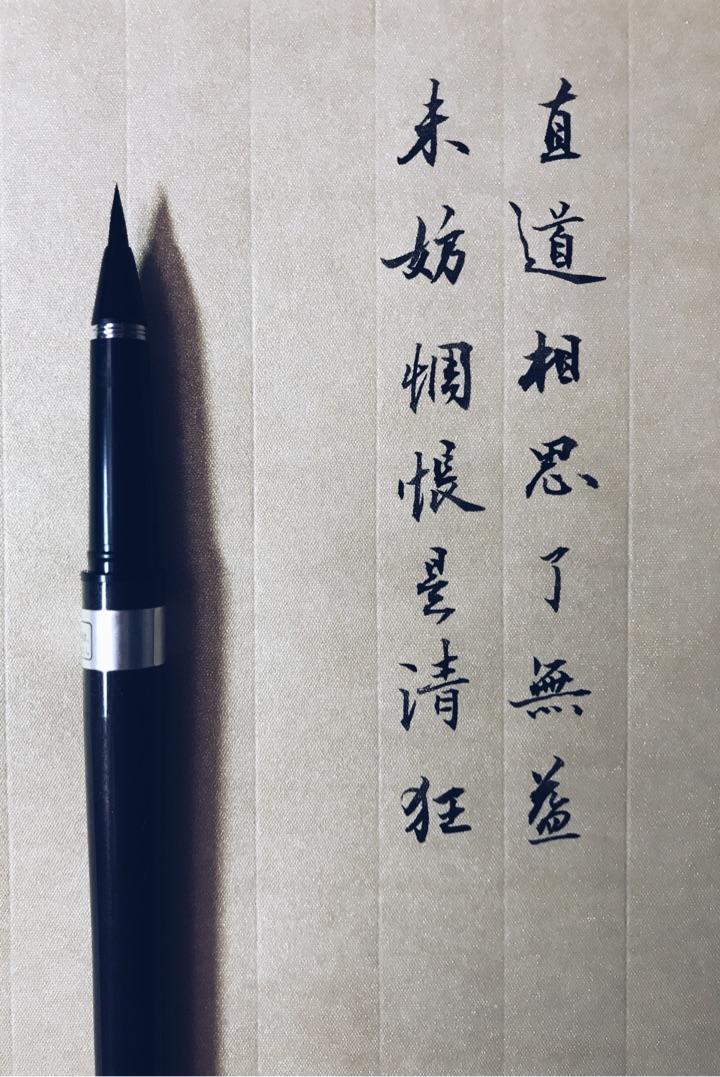 直道相思了無益
未妨惆悵是清狂